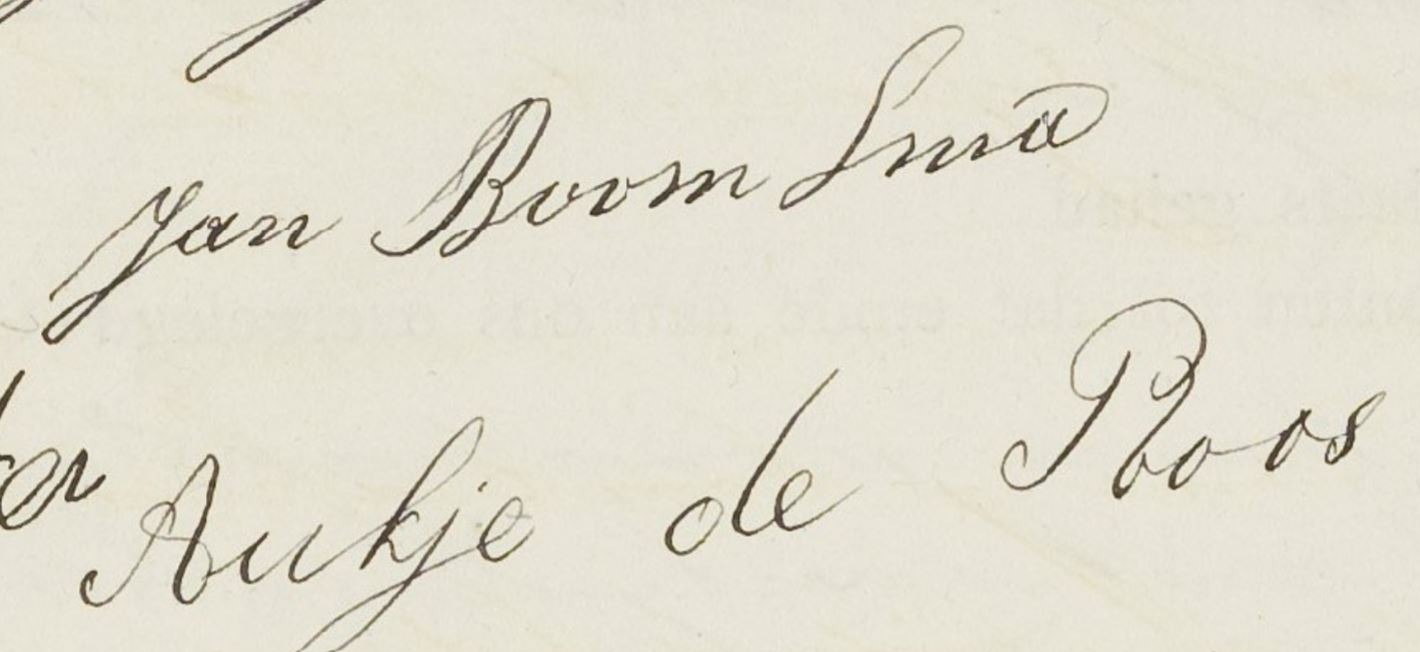 Jan Boom Sma
Aukje de Roos